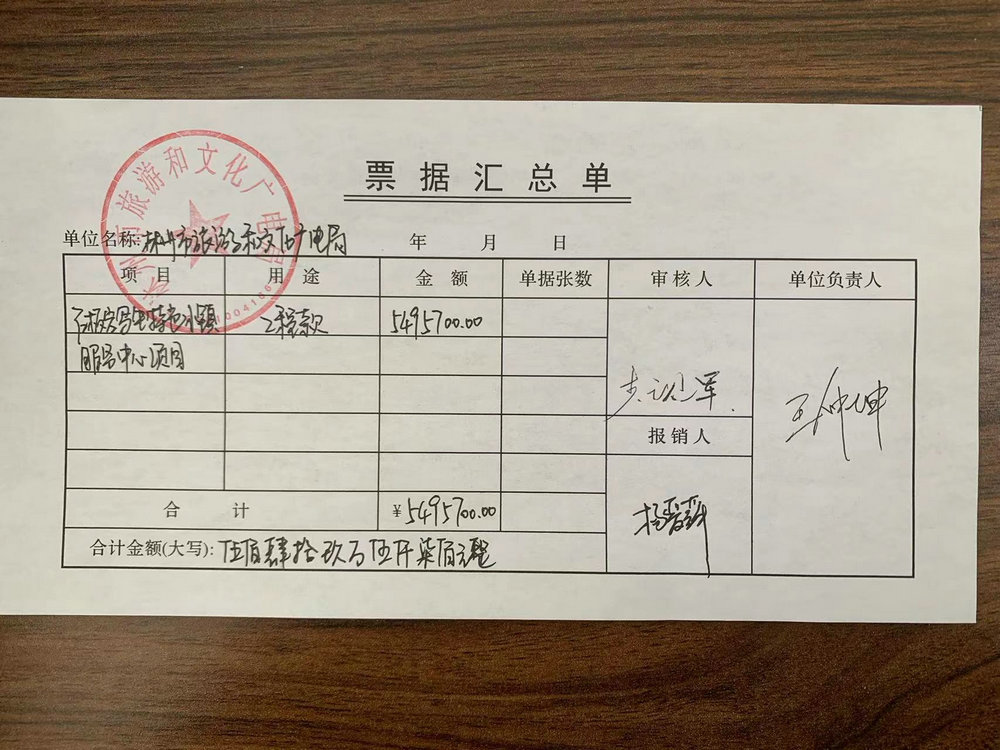 票据汇总单
单位名称:林州市旅游和文化广电局
年 月 日
项目 用途 金额 单据张数 审核人 单位负责人
石板岩写生特色小镇 工程款 5495700.00
服务中心项目
报销人
合计 ¥5495700.00
合计金额(大写):伍佰肆拾玖万伍仟柒佰元整
林州市旅游和文化广电局
王仲坤